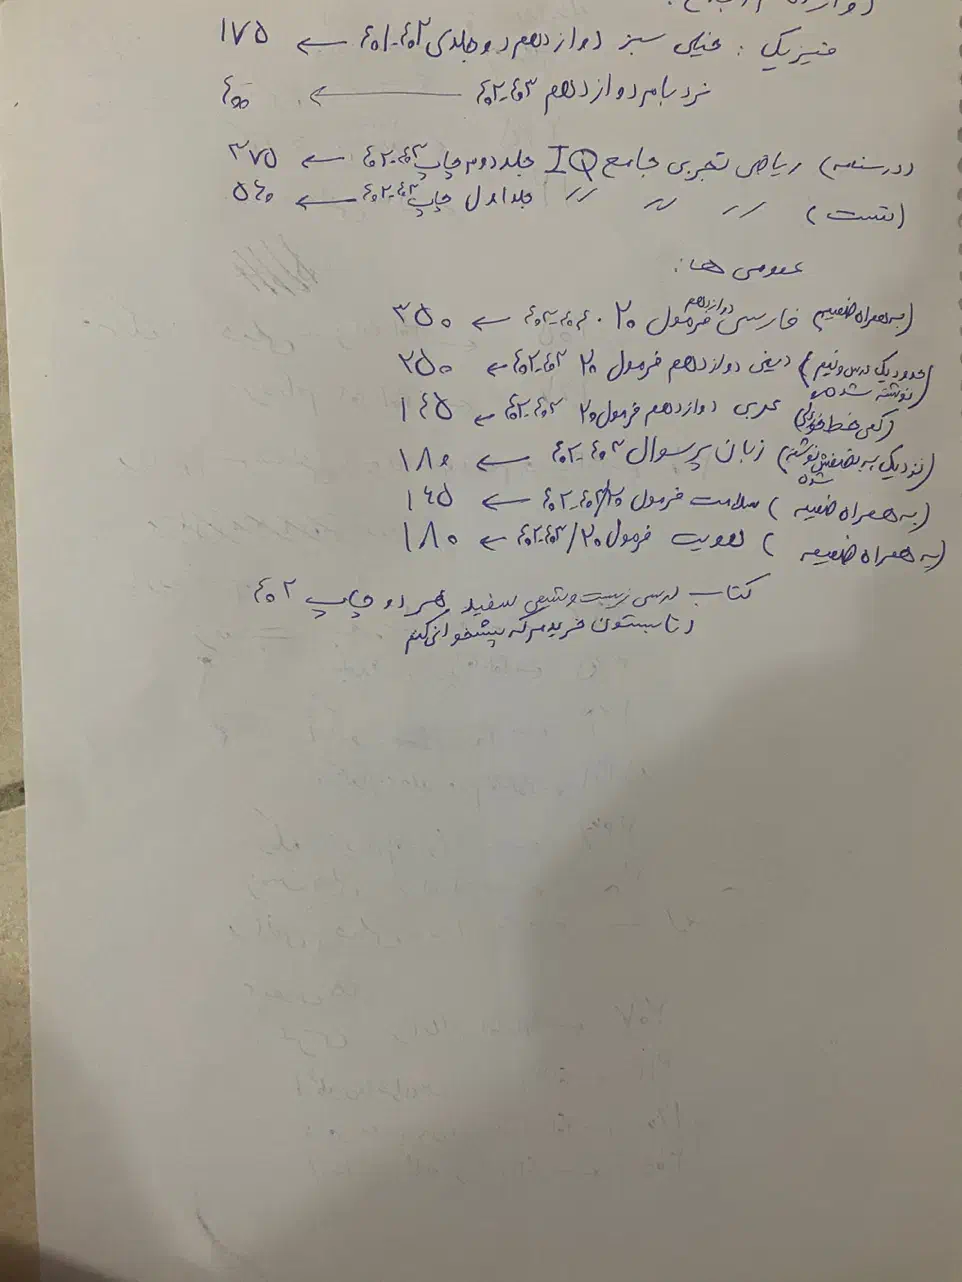 فیزیک : خیلی سبز دوازدهم دو جلدی ۴۰۲-۴۰۱ ← ۱۷۵
نردبام دوازدهم ۴۰۳-۴۰۲ ← ۴۰۰
(درسنامه) ریاضی تجربی جامع IQ جلد دوم چاپ ۴۰۳-۴۰۲ ← ۳۷۵
(تست) // // // جلد اول چاپ ۴۰۳-۴۰۲ ← ۵۴۰
عمومی ها :
(به همراه ضمیمه) فارسی دوازدهم فرمول ۲۰ ← ۳۵۰
(حدود یک درس و نیم نوشته شده) دینی دوازدهم فرمول ۲۰ ۴۰۳-۴۰۲ ← ۲۵۰
(کمی خط خوردگی) عربی دوازدهم فرمول ۲۰ ۴۰۳-۴۰۲ ← ۱۴۵
(نزدیک به نصفش نوشته شده) زبان پرسوال ۴۰۳-۴۰۲ ← ۱۸۰
(به همراه ضمیمه) سلامت فرمول ۲۰ ۴۰۳-۴۰۲ ← ۱۶۵
(به همراه ضمیمه) هویت فرمول ۲۰/ ۴۰۳-۴۰۲ ← ۱۸۰
کتاب درسی زیست و شیمی سفید هر دو چاپ ۴۰۲
تابستون خریدم که پیشخوانی کنم